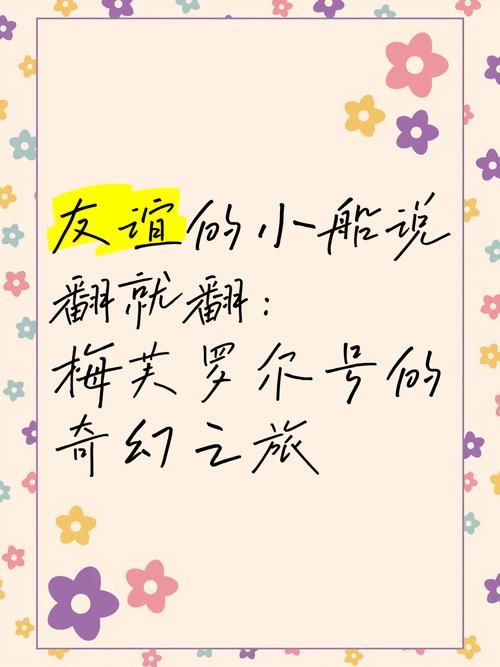 友谊的小船说
翻就翻：
梅芙罗尔号的
奇幻之旅